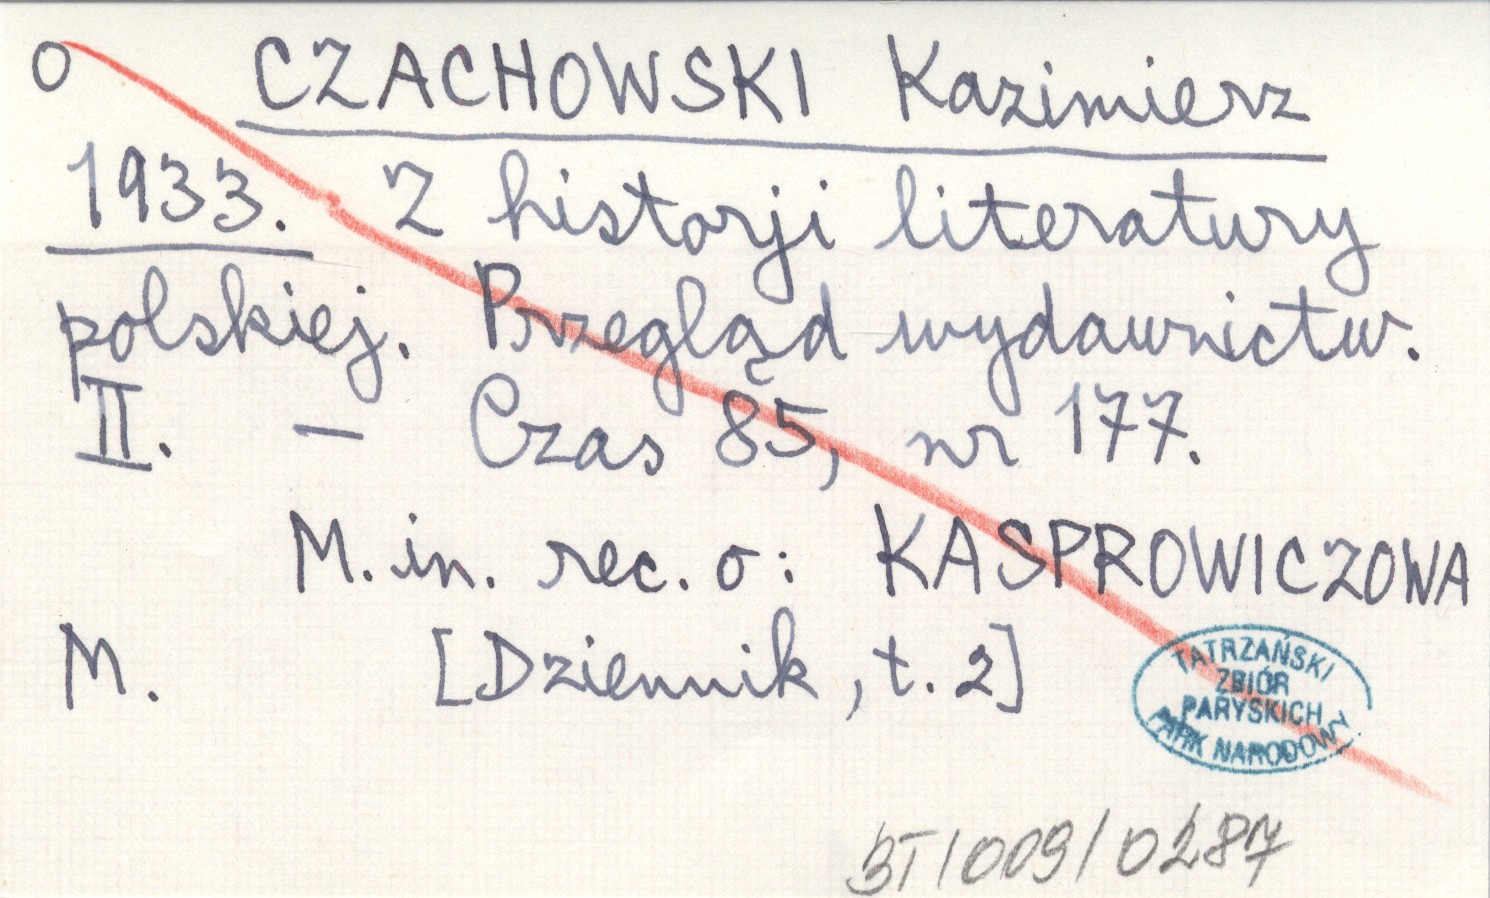 O CZACHOWSKI Kazimierz
1933. Z historji literatury
polskiej. Przegląd wydawnictw.
II. — Czas 85, nr 177.
M. in. rec. o: KASPROWICZOWA
M. [Dziennik, t. 2]
TATRZAŃSKI
ZBIÓR
PARYSKICH
PARK NARODOWY
BT/009/0287